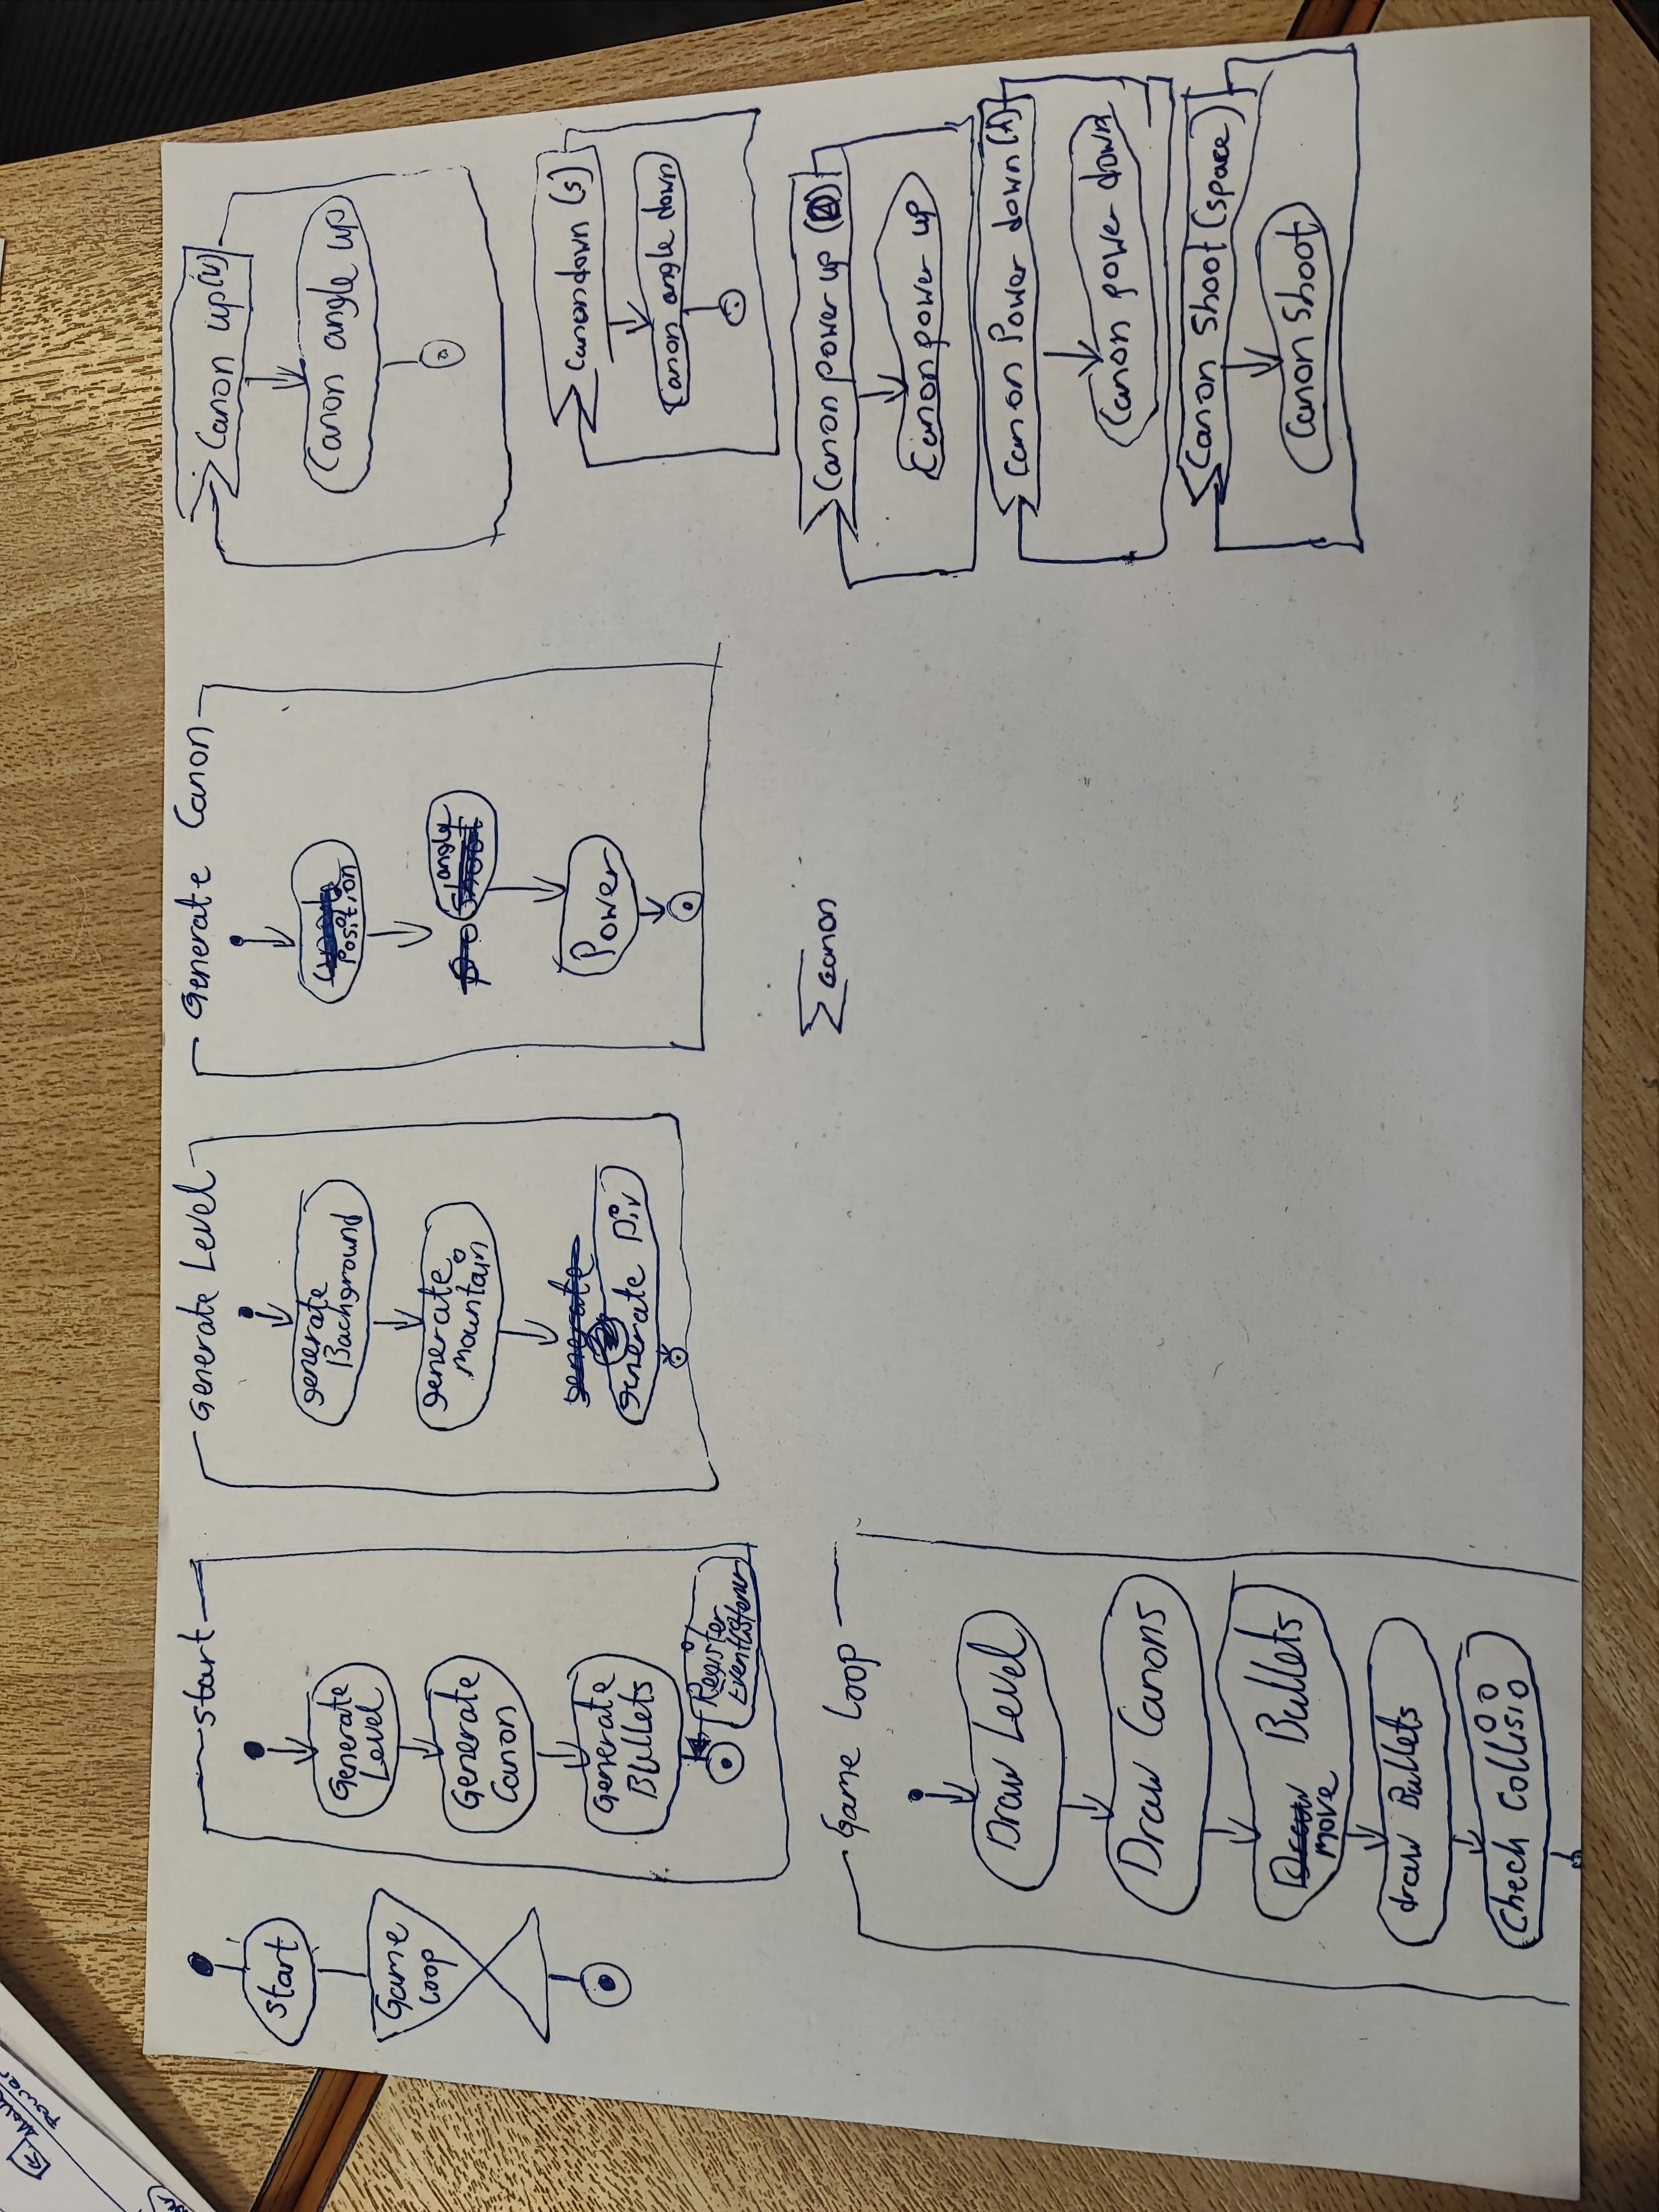 Start
Game
Loop
Start
Generate
Level
Generate
Canon
Generate
Bullets
Register
Eventlistener
Generate Level
generate
Background
generate
mountain
generate
Generate Canon
Position
angle
Power
Canon up
Canon angle up
Canon down (s)
Canon angle down
Canon power up
Canon power up
Canon Power down
Canon power down
Canon Shoot (space)
Canon Shoot
Canon
Game Loop
Draw Level
Draw Canons
Bullets
move
draw Bullets
Check Collisio